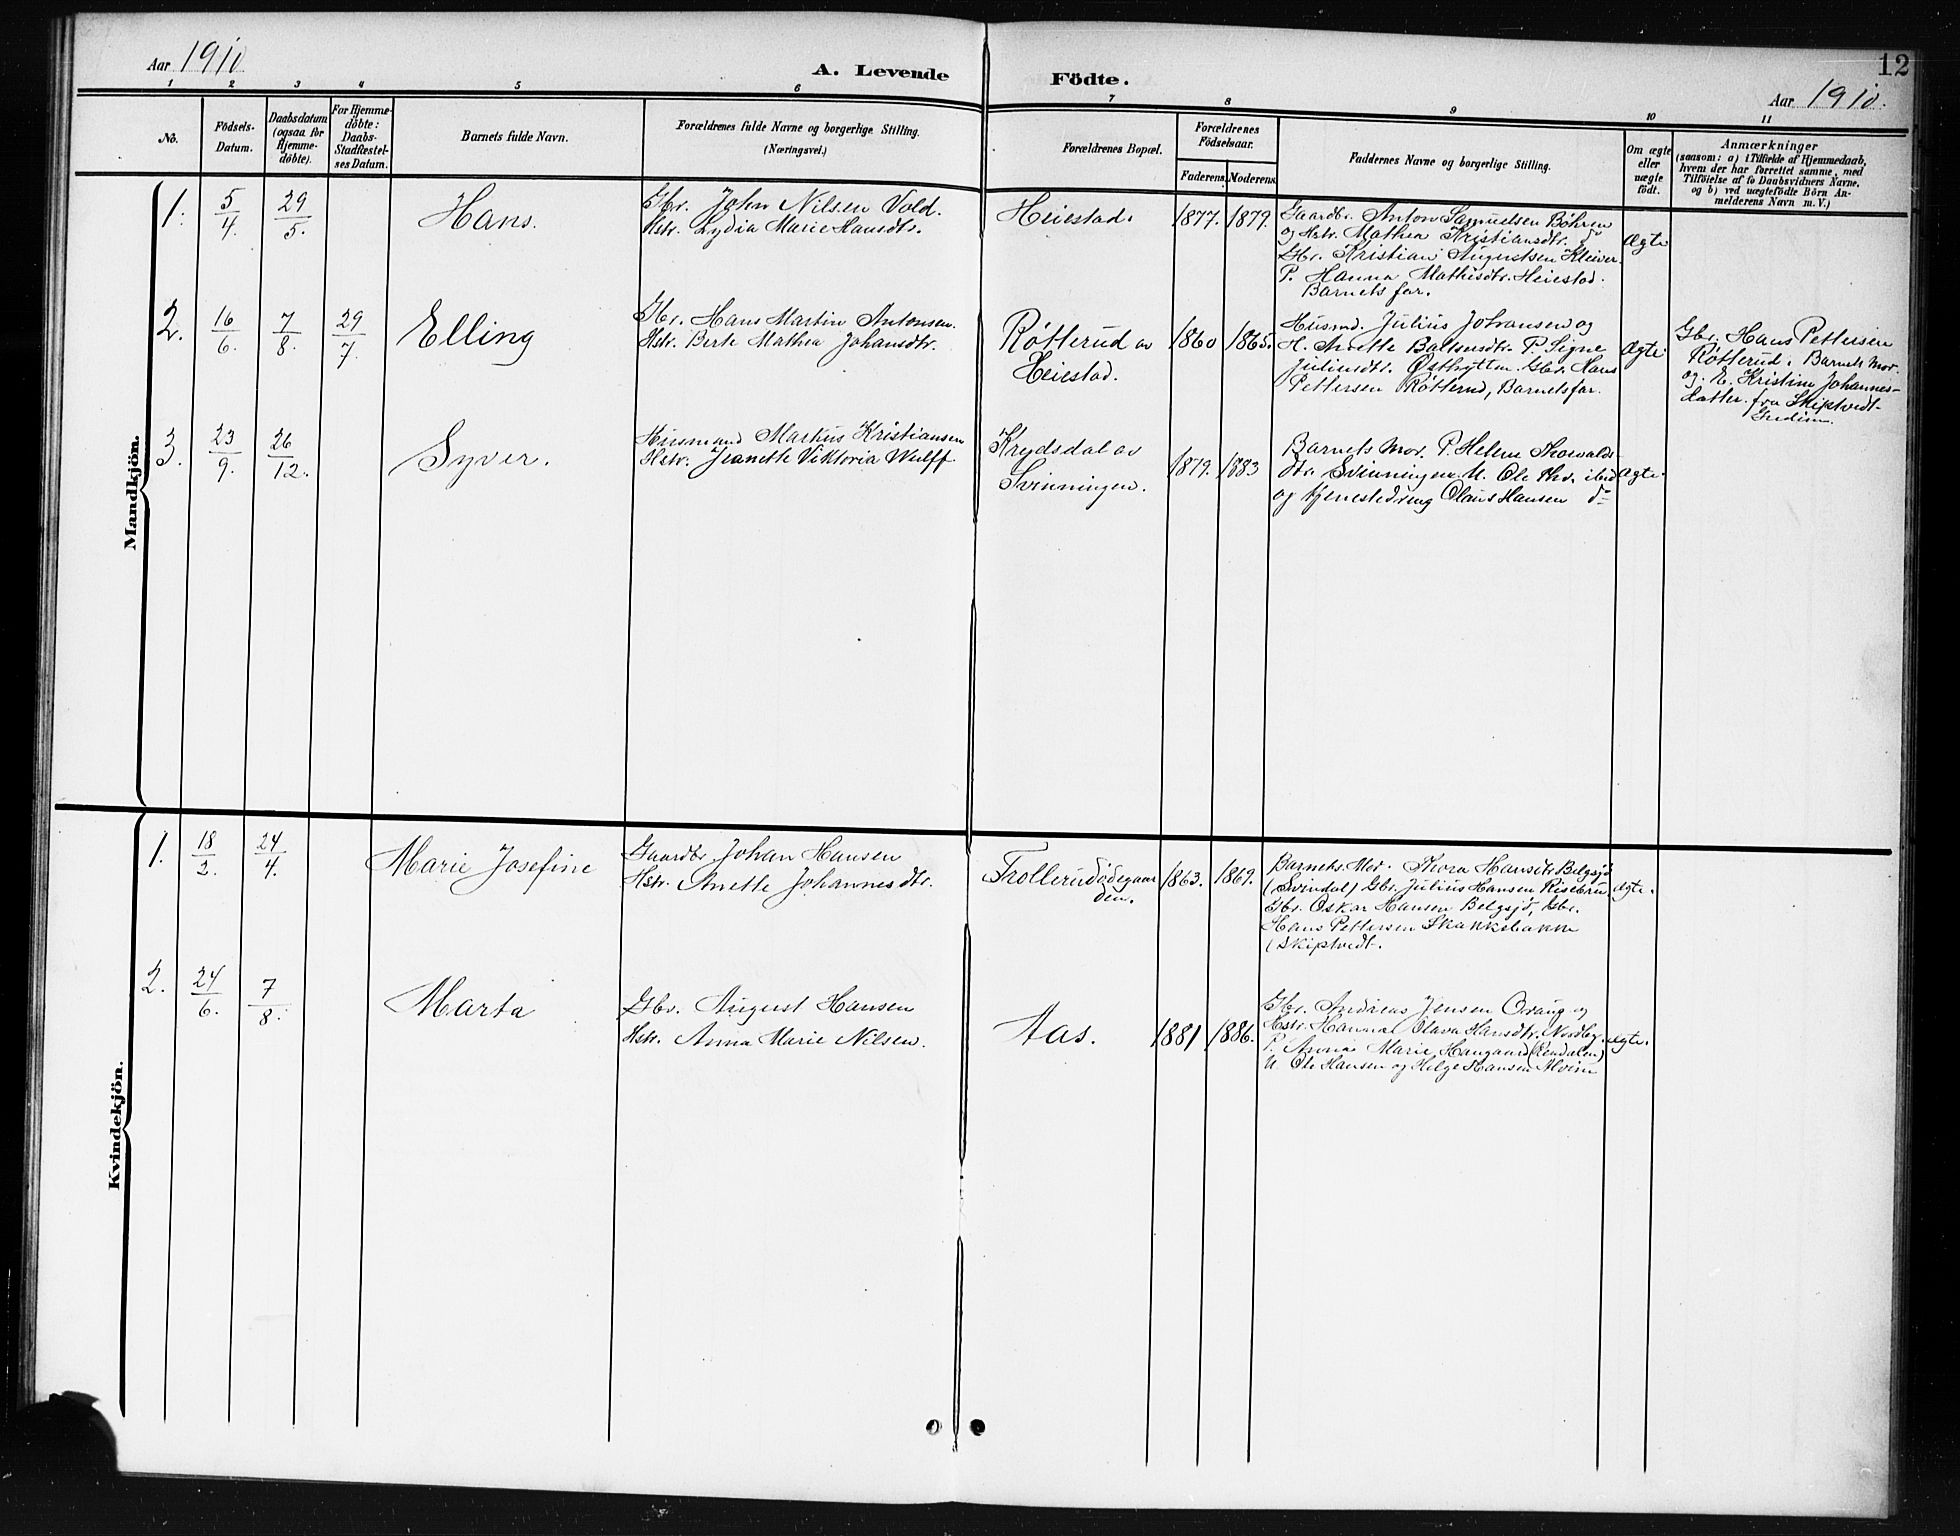 Aar 1910
A. Levende Födte.
12
Aar 1910.
1 2 3 4 5 6 7 8 9 10 11
No.
Födsels-
Datum.
Daabsdatum
(ogsaa for
Hjemme-
döbte).
For Hjemme-
döbte:
Daabs-
Stadfestel-
ses Datum.
Barnets fulde Navn.
Forældrenes fulde Navne og borgerlige Stilling.
(Næringsvei.)
Forældrenes Bopæl.
Forældrenes
Födselsaar.
Faderens. Moderens.
Faddernes Navne og borgerlige Stilling.
Om ægte
eller
uægte
födt.
Anmærkninger
(saasom: a) i Tilfælde af Hjemmedaab,
hvem der har forrettet samme, med
Tilföielse af to Daabsvidners Navne,
og b) ved uægtefödte Börn An-
melderens Navn m. V.)
Mandkjön.
1.
5/4.
29/5.
Hans.
Gbr. Johan Nilsen Vold.
Hstr. Lydia Marie Hansdtr.
Heiestad.
1877. 1879.
Gaardbr. Anton Samuelsen Böhren
og Hstr. Mathea Kristiansdtr. do
Gbr. Kristian Augustsen Kleiver.
P. Hanna Mathisdtr. Heiestad.
Barnets far.
Ægte
2.
16/6.
7/8.
29/7.
Elling
Gbr. Hans Martin Antonsen.
Hstr. Berte Mathea Johansdtr.
Røtterud av
Heiestad.
1860 1865.
Husmd. Julius Johansen og
H. Anette Baltsersdtr. P. Signe
Juliusdtr. Østhytten. Gbr. Hans
Pettersen Røtterud, Barnetsfar.
Ægte
Gbr. Hans Pettersen
Røtterud. Barnets Mor.
og E. Kristine Johannes-
datter. fra Skiptvedt-
3.
23/9.
26/12.
Syver.
Husmand Markus Kristiansen
Hstr. Jeanette Viktoria Wulff.
Krydsdal av
Svinningen.
1879. 1883
Barnets Mor. P. Helene Thorvalds-
dtr. Svinningen U. Ole Thv. ibid
og tjenestedreng Olaus Hansen do
Ægte.
Kvindekjön.
1.
18/2.
24/4.
Marie Josefine
Gaardbr. Johan Hansen
Hstr. Anette Johannesdtr.
Trollerudødegaar
den.
1863. 1869.
Barnets Mor. Thora Hansdtr Belgsjö
(Svindal) Gbr. Julius Hansen Risebru
Gbr. Oskar Hansen Belgsjö, Gbr.
Hans Pettersen Skakkebakke
(Skiptvedt.
Ægte.
2.
24/6.
7/8.
Marta
Gbr. August Hansen
Hstr. Anna Marie Nilsen.
Aas.
1881 1886.
Gbr. Andreas Jensen Oraug og
Hstr. Hanna Olava Hansdtr. Nordby.
P. Anna Marie Haugaard (Rendalen)
U. Ole Hansen og Helge Hansen Alvim
Ægte.